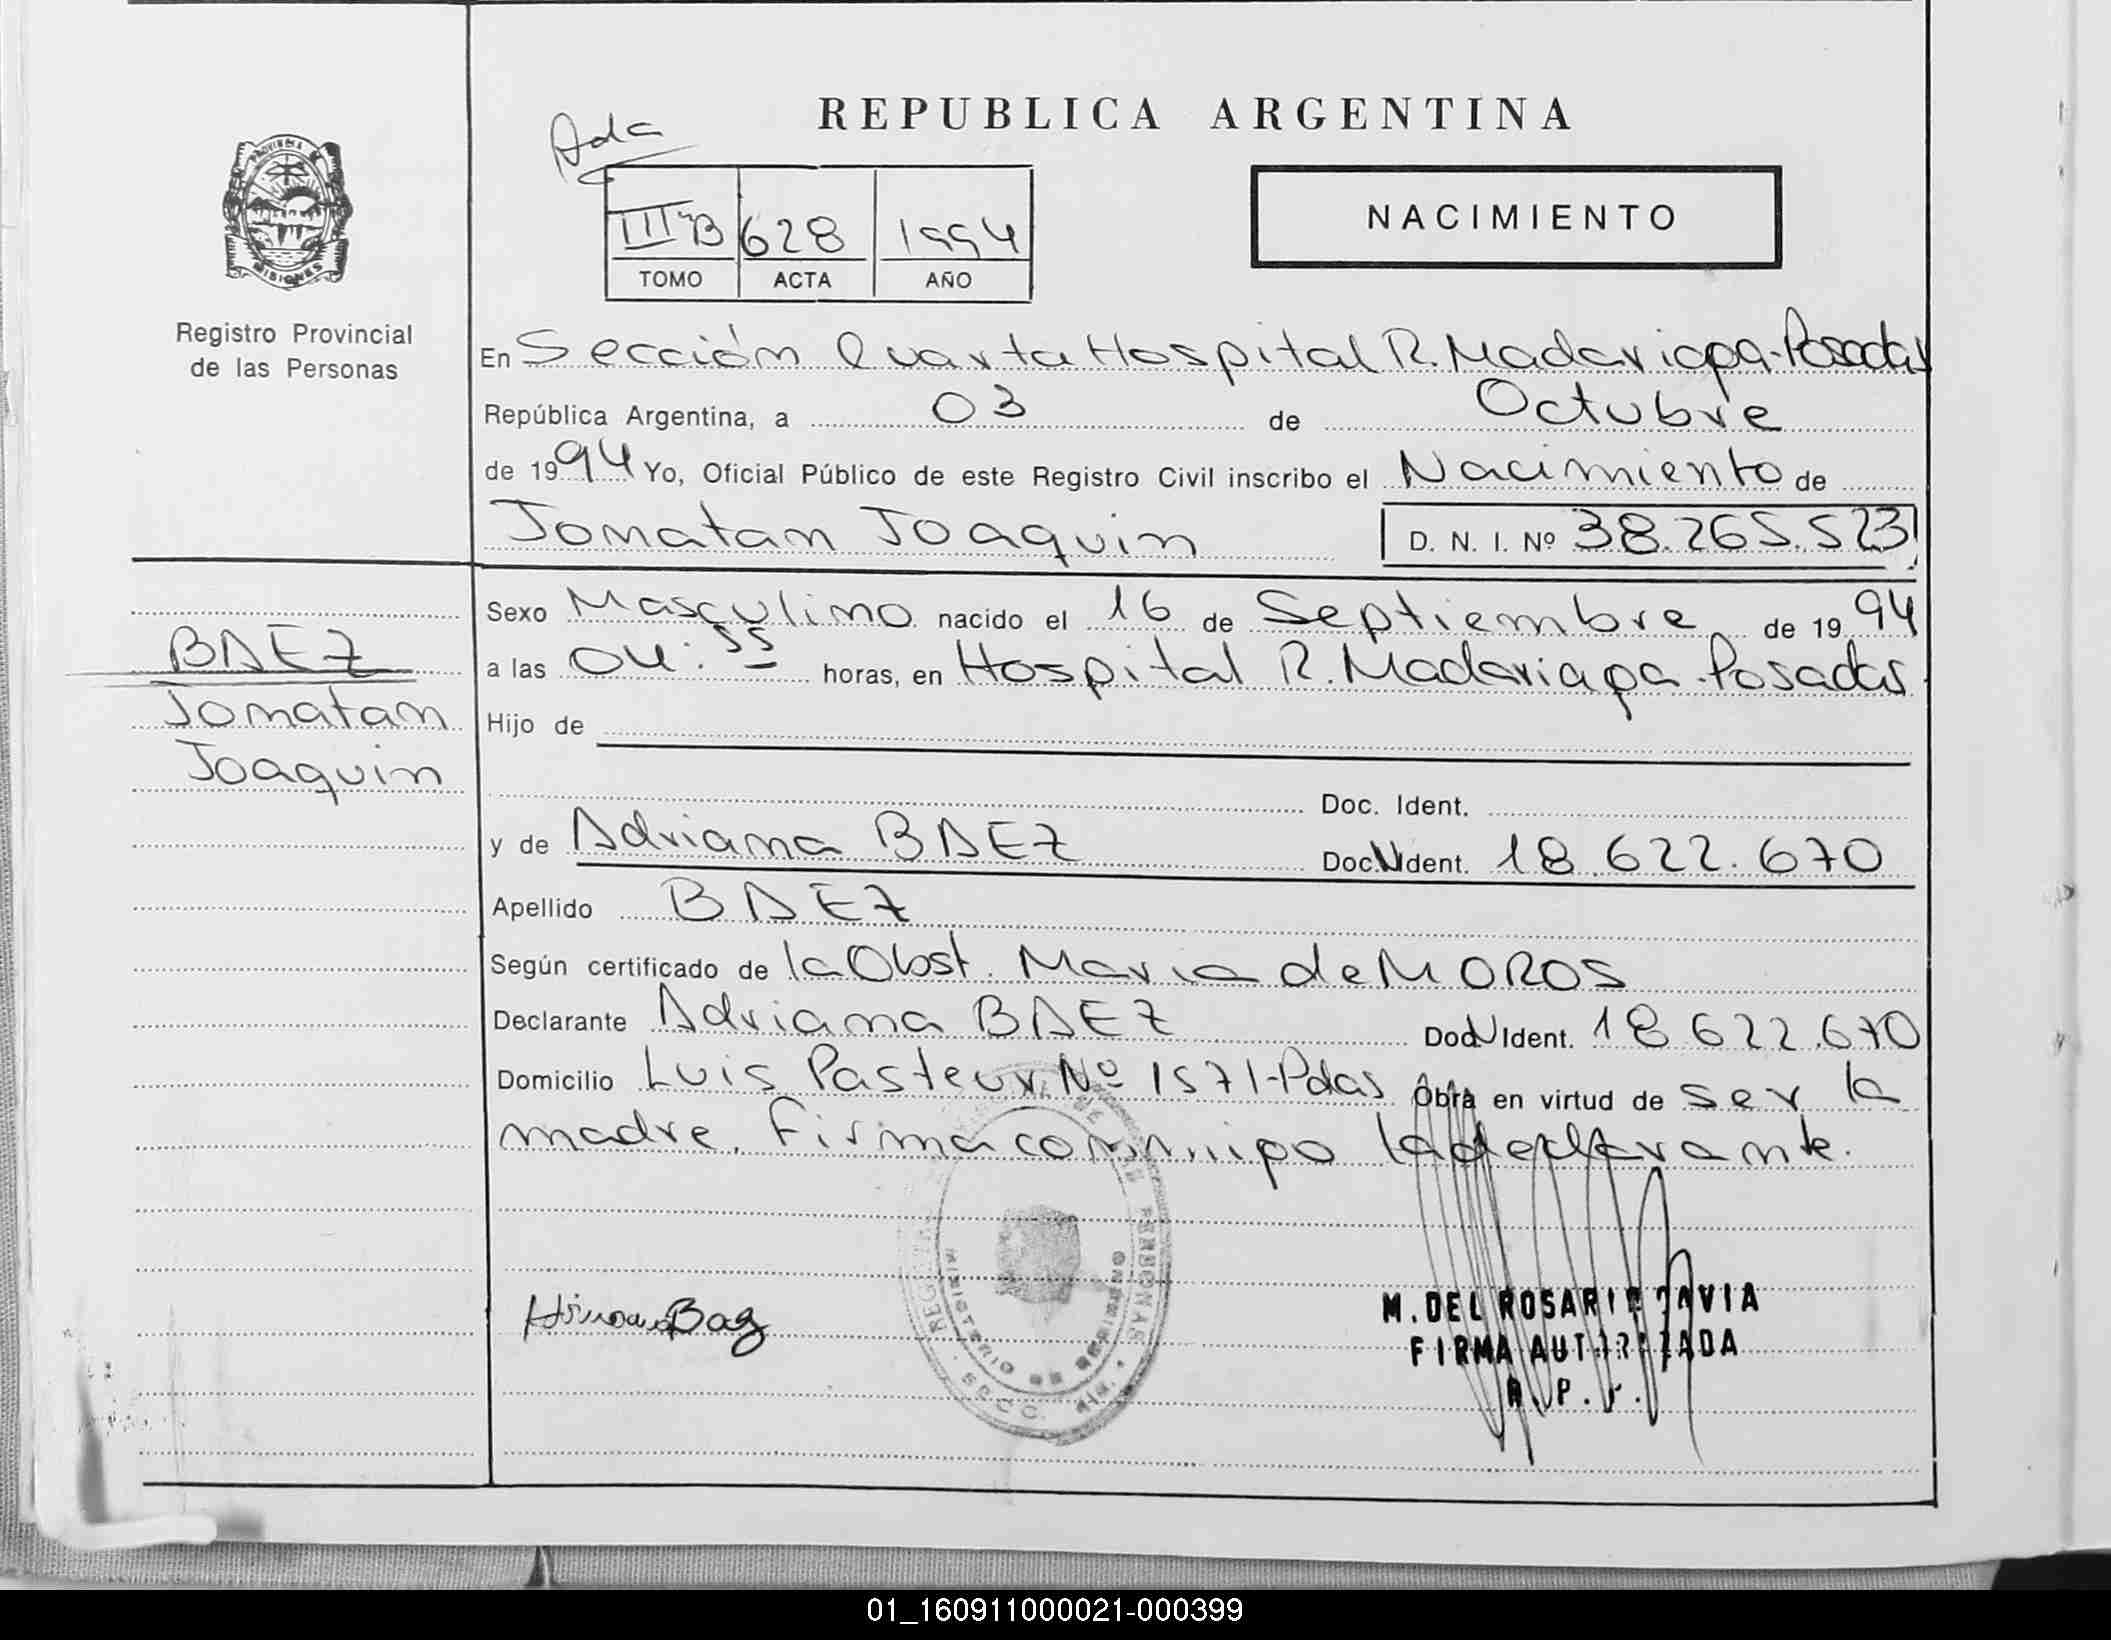 REPUBLICA ARGENTINA
Adc
III B 628 1994
TOMO ACTA AÑO
NACIMIENTO
PROVINCIA DE
MISIONES
Registro Provincial
de las Personas
En Sección Cuarta Hospital R. Madariaga-Posadas
República Argentina, a 03 de Octubre
de 1994 Yo, Oficial Público de este Registro Civil inscribo el Nacimiento de
Jonatan Joaquin D. N. I. Nº 38.265.523
Sexo Masculino nacido el 16 de Septiembre de 1994
a las 04:55 horas, en Hospital R. Madariaga-Posadas
Hijo de
Doc. Ident.
y de Adriana BAEZ Doc. N Ident. 18.622.670
Apellido BAEZ
Según certificado de la Obst. Maria de MOROS
Declarante Adriana BAEZ Doc N Ident. 18.622.670
Domicilio Luis Pasteur Nº 1571-Pdas Obra en virtud de ser la
madre. Firma conmigo la declarante.
BAEZ
Jonatan
Joaquin
REGISTRO DE LAS PERSONAS
MINISTERIO DE GOBIERNO
Baez
M. DEL ROSARIO
FIRMA AUTORIZADA
R. P. P.
01_160911000021-000399